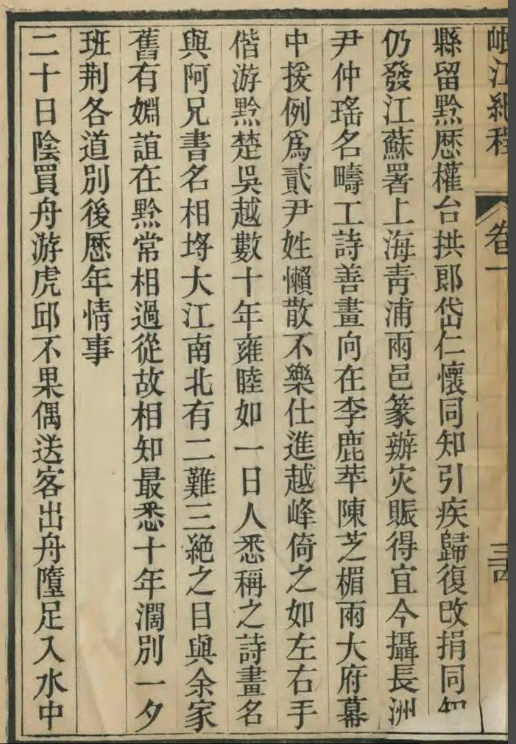 岷江紀程　卷一
縣留黔厯權台拱郎岱仁懷同知引疾歸復改捐同知
仍發江蘇署上海青浦兩邑篆辦灾賑得宜今攝長洲
尹仲瑤名疇工詩善畫向在李鹿苹陳芝楣兩大府幕
中援例爲貳尹姓懶散不樂仕進越峰倚之如左右手
偕游黔楚吳越數十年雍睦如一日人悉稱之詩畫名
與阿兄書名相埒大江南北有二難三絶之目與余家
舊有婣誼在黔常相過從故相知最悉十年濶別一夕
班荆各道別後厯年情事
二十日陰買舟游虎邱不果偶送客出舟墮足入水中